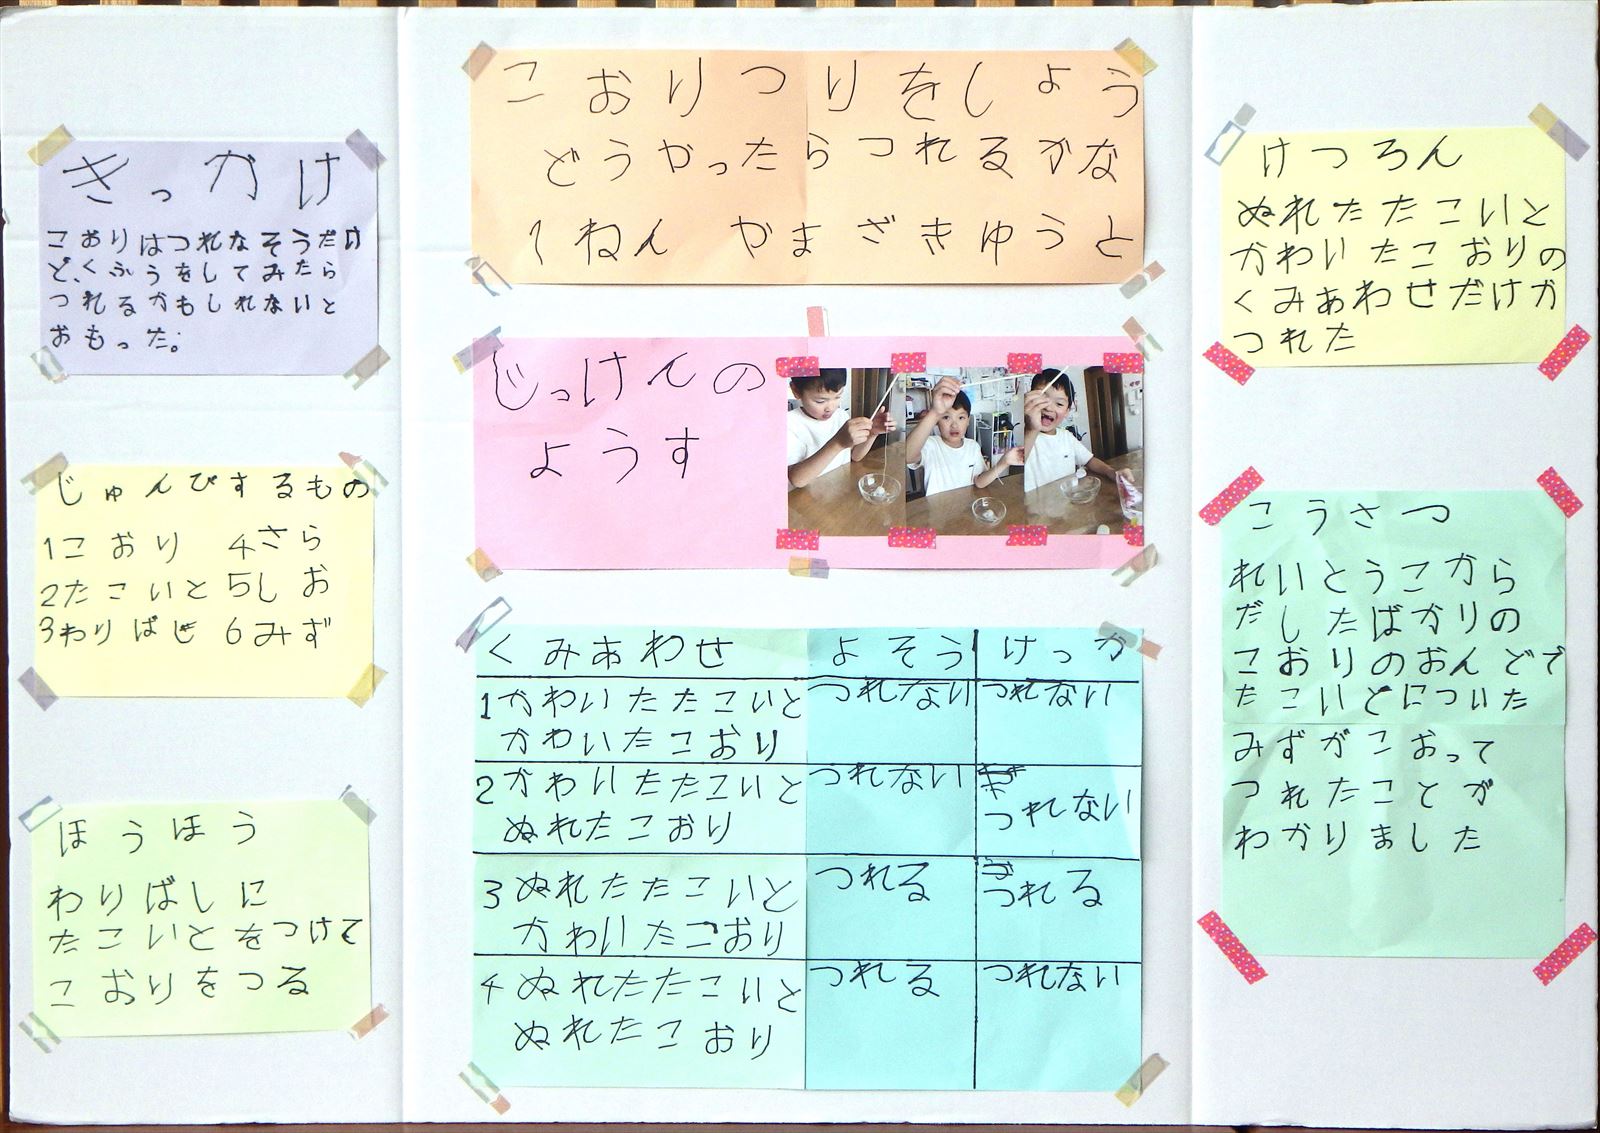 こおりつりをしよう
どうやったらつれるかな
1ねん やまざきゆうと
きっかけ
こおりはつれなそうだけ
ど、くふうをしてみたら
つれるかもしれないと
おもった。
じゅんびするもの
1こおり 4さら
2たこいと 5しお
3わりばし 6みず
ほうほう
わりばしに
たこいとをつけて
こおりをつる
じっけんの
ようす
くみあわせ よそう けっか
1かわいたたこいと つれない つれない
かわいたこおり
2かわいたたこいと つれない つれない
ぬれたこおり
3ぬれたたこいと つれる つれる
かわいたこおり
4ぬれたたこいと つれる つれない
ぬれたこおり
けつろん
ぬれたたこいと
かわいたこおりの
くみあわせだけが
つれた
こうさつ
れいとうこから
だしたばかりの
こおりのおんどで
たこいとについた
みずがこおって
つれたことが
わかりました